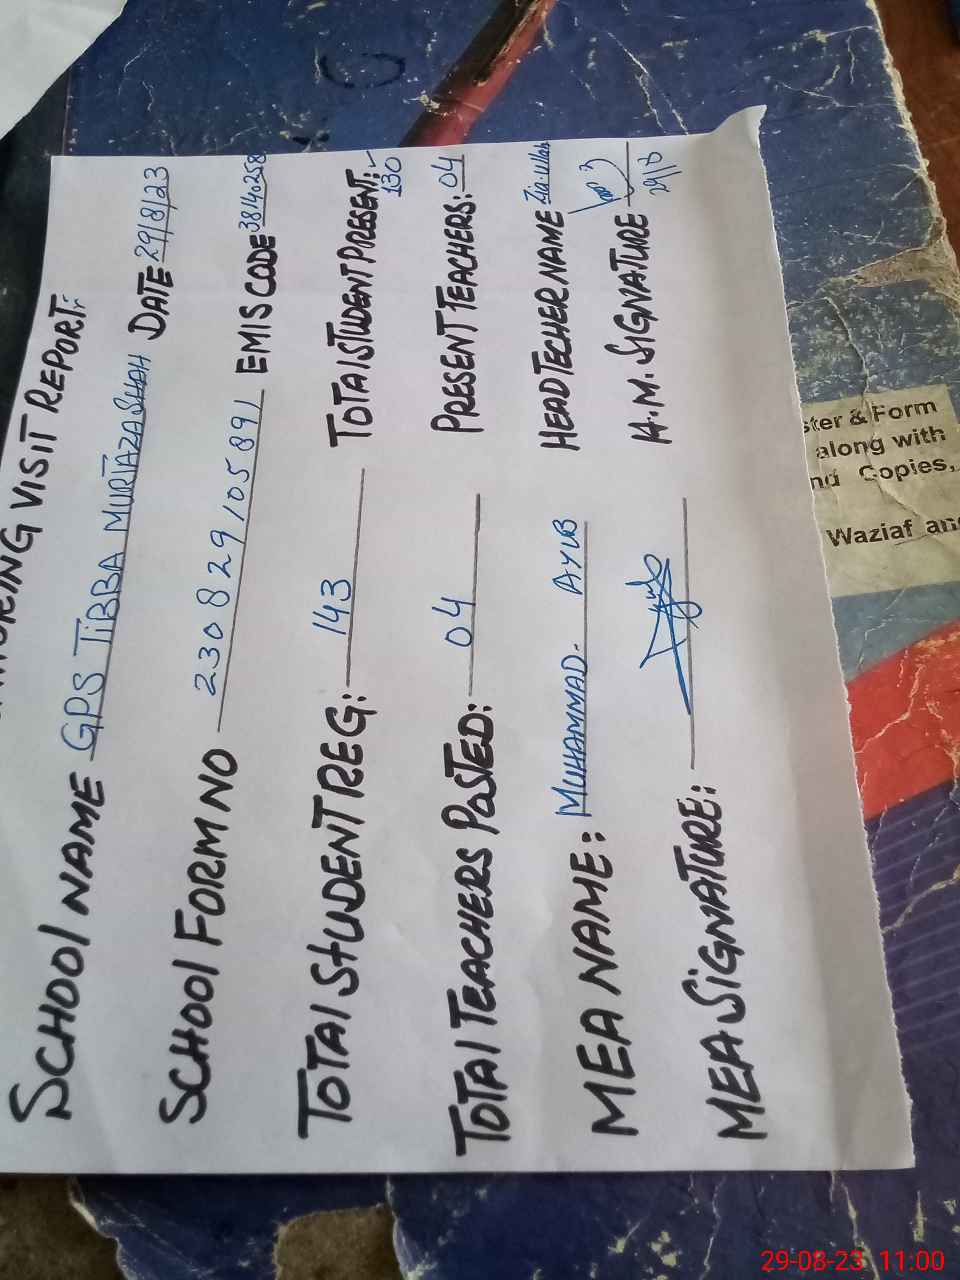 VISIT REPORT:-
SCHOOL NAME GPS TIBBA MURTAZA SHAH DATE 29/8/23
SCHOOL FORM NO 230829105891 EMIS CODE 38140258
TOTAL STUDENT REG: 143 TOTAL STUDENT PRESENT:- 130
TOTAL TEACHERS POSTED: 04 PRESENT TEACHERS: 04
MEA NAME: MUHAMMAD. AYUB HEAD TECHER NAME Zia ullah
MEA SIGNATURE: H.M. SIGNATURE
29/8
ster & Form
along with
nd Copies,
Waziaf and
29-08-23 11:00